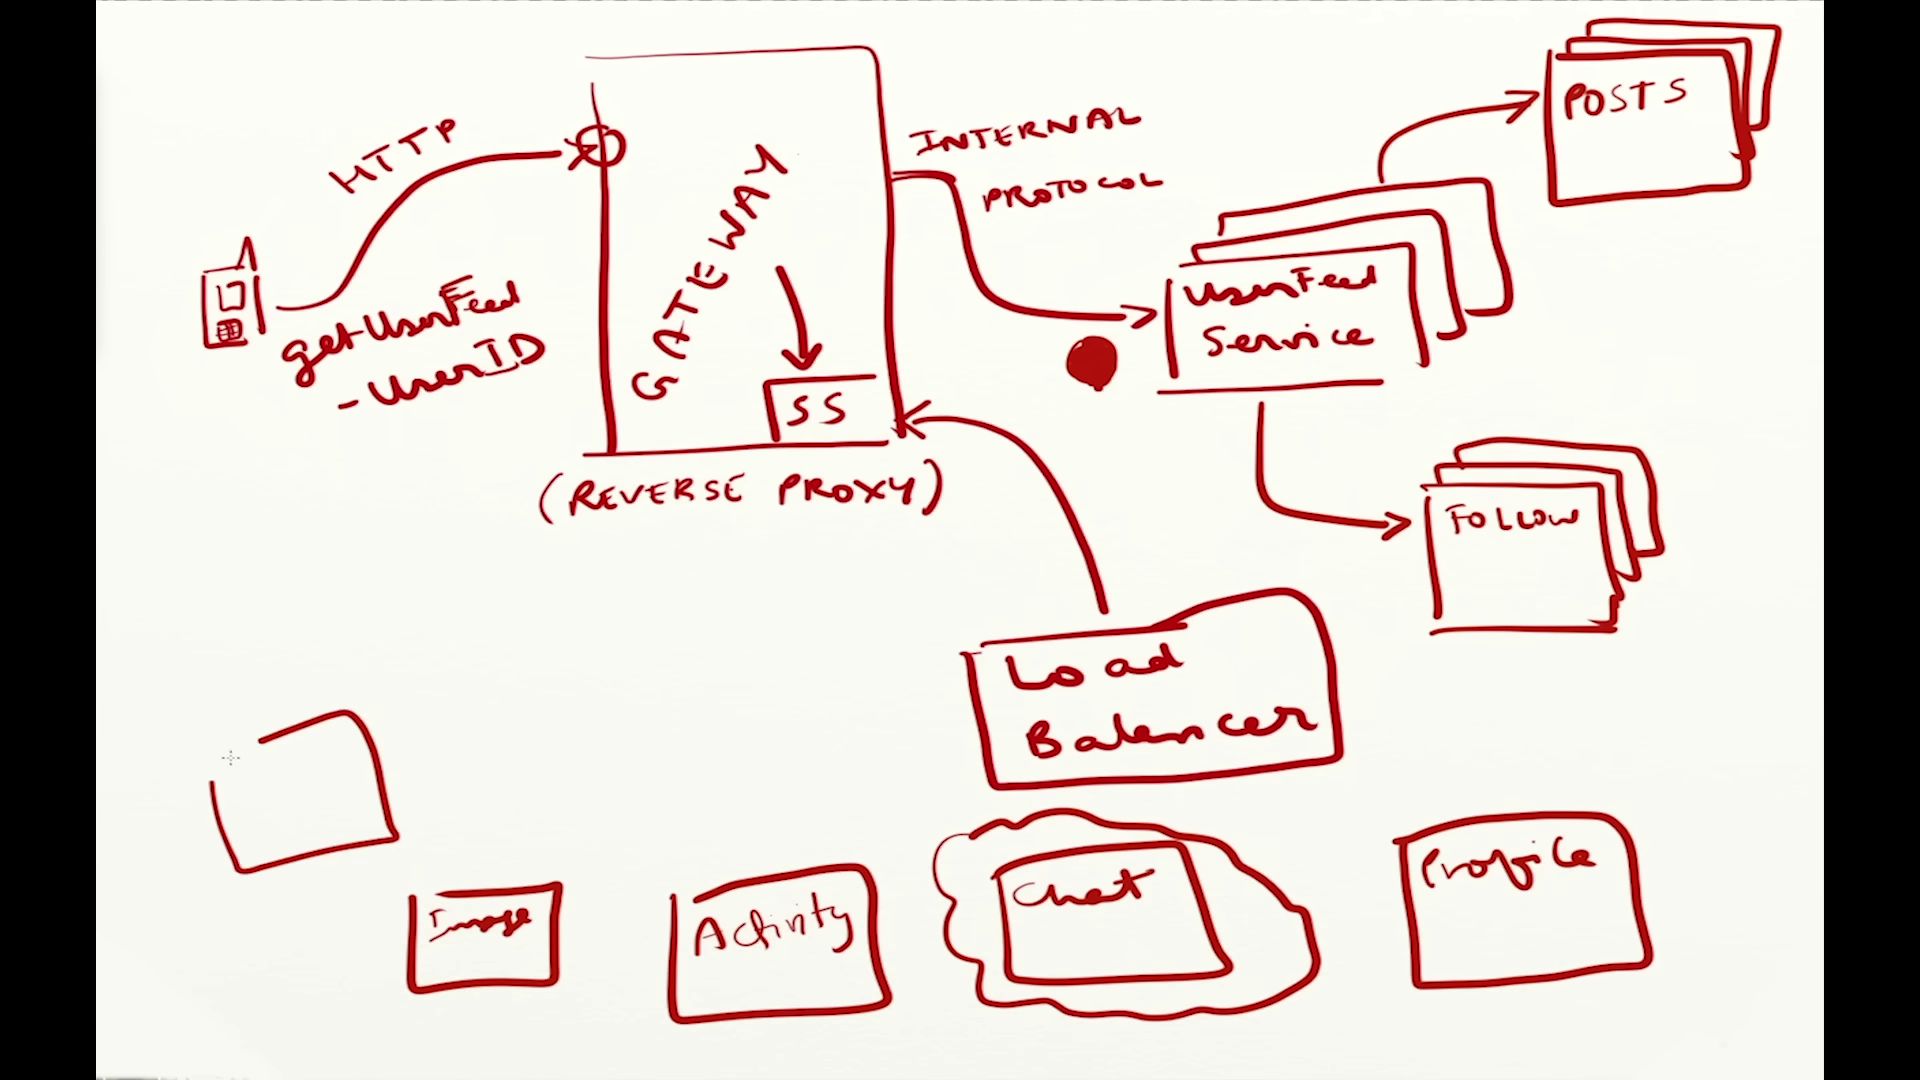 HTTP
getUserFeed
- UserID
GATEWAY
SS
(REVERSE PROXY)
INTERNAL
PROTOCOL
UserFeed
Service
POSTS
FOLLOW
Load
Balancer
Image
Activity
Chat
Profile